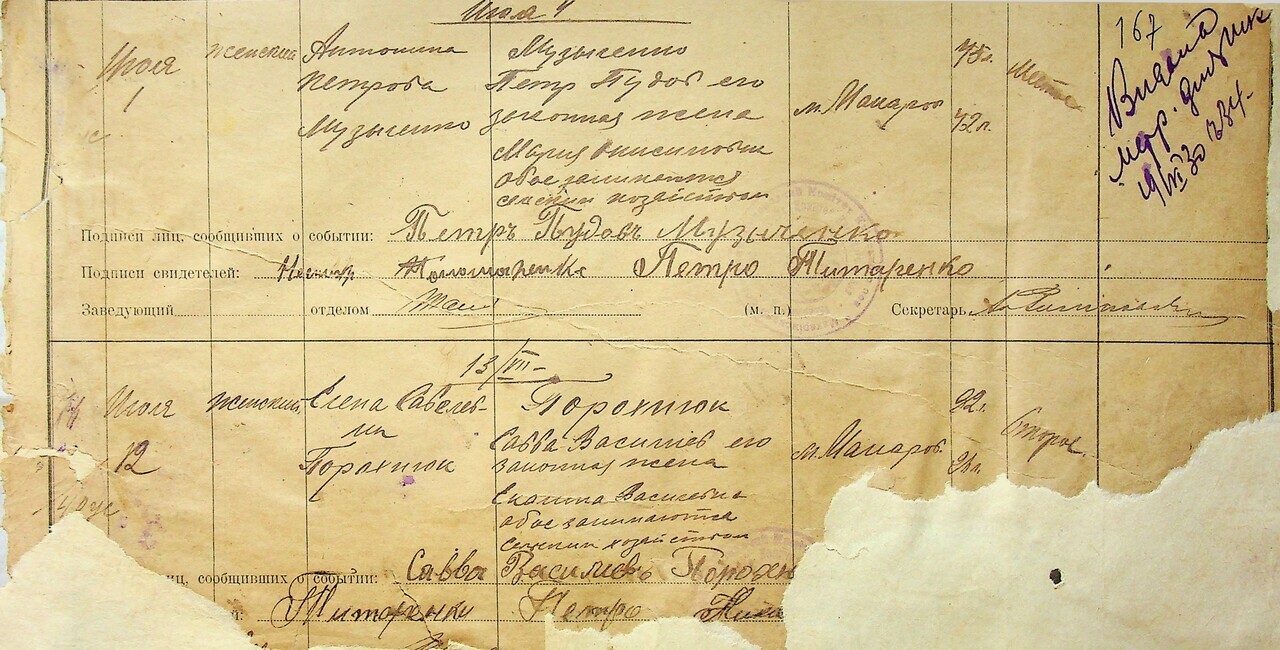 Июля 4
Июля
1
женский
Антонина
Петрова
Музыченко
Музыченко
Петр Пудов его
законная жена
Мария Онисимовна
обое занимаются
сельским хозяйством
м. Макаров
45л.
42л.
шестое
167
Выдана
19/VI 30
Подписи лиц, сообщивших о событии: Петръ Пудовъ Музыченко
Подписи свидетелей: Нестір Пономаренко Петро Титаренко
Заведующий отделом (м. п.) Секретарь
13/VII-
Июля
12
женский
Елена Савелев-
на
Порохнюк
Порохнюк
Савва Василиев его
законная жена
Василевна
обое занимаются
сельским хозяйством
м. Макаров
второе
лиц, сообщивших о событии: Савва Василиевъ Порохн
Титаренко Петро Ника